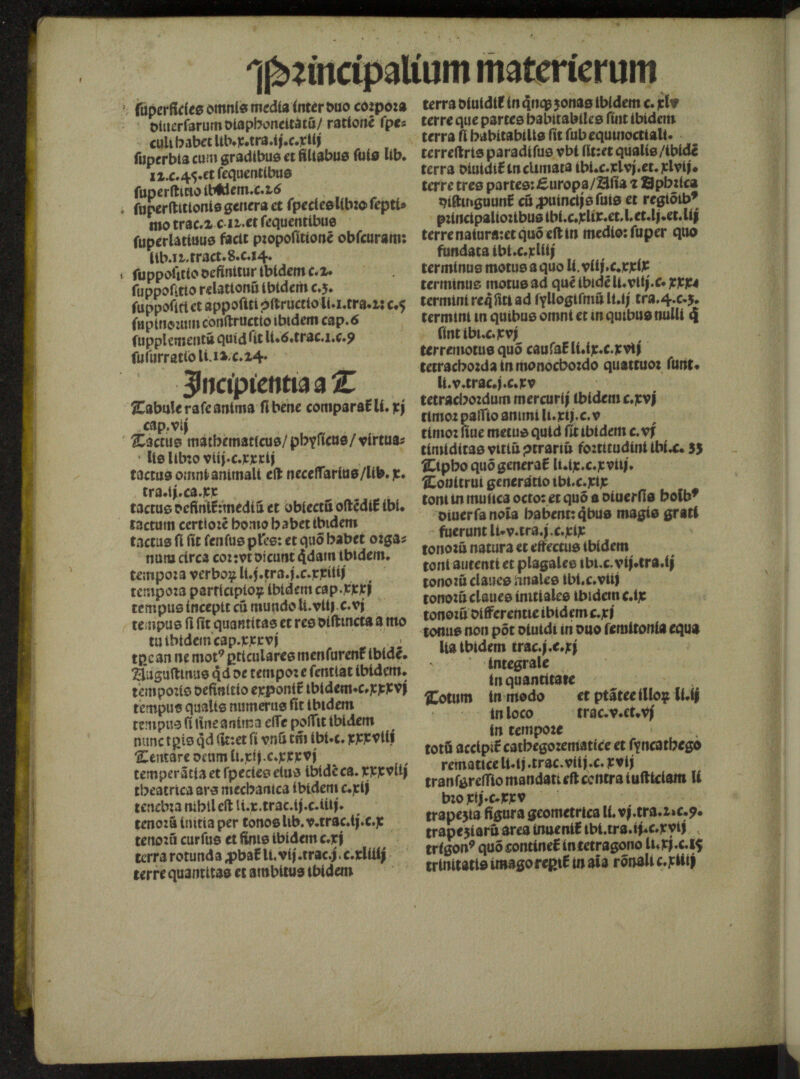 Principalium materierum
superficies omnis media inter duo corpora
diuersarum diaphoneitatū/ rationē spe⸗
culi habet lib.x.tra.ij.c.xiij
superbia cum gradibus et filiabus suis lib.
12.c.45.et sequentibus
superstitio ibidem.c.26
superstitionis genera et species libro septi⸗
mo trac.2 c 12.et sequentibus
superlatiuus facit propositionē obscuram:
lib.12.tract.8.c.14.
suppositio definitur ibidem c.2.
suppositio relationū ibidem c.3.
suppositi et appositi ꝯstructio li.1.tra.2: c.5
supinorum constructio ibidem cap.6
supplementū quid sit li.6.trac.1.c.9
susurratio li.12.c.24.
Incipientia a T
Tabule rase anima si bene comparaꝉ li. xj
cap.vij
Tactus mathematicus/ physicus/ virtua⸗
lis libro viij.c.xxxij
tactus omni animali est necessarius/lib. x.
tra.ij.ca.xx
tactus definiꝉ:mediū et obiectū ostēdiꝉ ibi.
tactum certiorē homo habet ibidem
tactus si sit sensus pl'es: et quō habet orga⸗
num circa cor:vt dicunt q̄dam ibidem.
tempora verboꝝ li.j.tra.j.c.xxiiij
tempora participioꝝ ibidem cap.xxxj
tempus incepit cū mundo li.viij.c.vj
tempus si sit quantitas et res distincta a mo
tu ibidem cap.xxxvj
tp̄e an ne motꝰ pticulares mensurenꝉ ibidē.
Augustinus qd de tempore sentiat ibidem.
temporis definitio exponiꝉ ibidem.c.xxxvj
tempus qualis numerus sit ibidem
tempus si sine anima esse possit ibidem
nunc tp̄is qd sit:et si vnū tm̄ ibi.c. xxxviij
Tentare deum li.xij.c.xxxvj
temperātia et species eius ibidē ca. xxxviij
theatrica ars mechanica ibidem c.xij
tenebra nihil est li.x.trac.ij.c.iiij.
tenorū initia per tonos lib.v.trac.ij.c.x
tenorū cursus et finis ibidem c.xj
terra rotunda ꝓbaꝉ li.vij.trac.j.c.xliiij
terre quantitas et ambitus ibidem
terra diuidiꝉ in qnqꝫ zonas ibidem c. xlv
terre que partes habitabiles sint ibidem
terra si habitabilis sit sub equinoctiali.
terrestris paradisus vbi sit:et qualis/ibidē
terra diuidiꝉ in climata ibi.c.xlvj.et. xlvij.
terre tres partes: Europa/Asia ⁊ Aphrica
distinguunꝉ cū ꝓuincijs suis et regiōibꝰ
principalioribus ibi.c.xlix.et.l.et.lj.et.lij
terre natura:et quō est in medio: super quo
fundata ibi.c.xliij
terminus motus a quo li.viij.c.xxix
terminus motus ad quē ibidē li.viij.c. xxx
termini reqsiti ad syllogismū li.ij tra.4.c.3.
termini in quibus omni et in quibus nulli q̄
sint ibi.c.xvj
terremotus quō causaꝉ li.ix.c.xvij
tetrachorda in monochordo quattuor sunt.
li.v.trac.j.c.xv
tetrachordum mercurij ibidem c.xvj
timor passio animi li.xij.c.v
timor siue metus quid sit ibidem c.vj
timiditas vitiū ꝯtrariū fortitudini ibi.c. 35
Tipho quō generaꝉ li.ix.c.xviij.
Tonitrui generatio ibi.c.xix
toni in musica octo: et quō a diuersis
diuersa noīa habent: qbus magis grati
fuerunt li.v.tra.j.c.xix
tonorū natura et effectus ibidem
toni autenti et plagales ibi.c.vij.tra.ij
tonorū claues finales ibi.c.viij
tonorū claues initiales ibidem c.ix
tonorū differentie ibidem c.xj
tonus non pōt diuidi in duo semitonia equa
lia ibidem trac.j.c.xj
integrale
in quantitate
Totum in modo et ptātee illoꝝ li.ij
in loco trac.v.et.vj
in tempore
totū accipiꝉ cathegorematice et syncathego
rematice li.ij.trac.viij.c.xvij
transgressio mandati est contra iusticiam li
bro xij.c.xxv
trapezia figura geometrica li.vj.tra.2.c.9.
trapeziarū area inueniꝉ ibi.tra.ij.c.xvij
trigonꝰ quō contineꝉ in tetragono li.xj.c.15
trinitatis imago repiꝉ in aīa rōnali c.xiiij